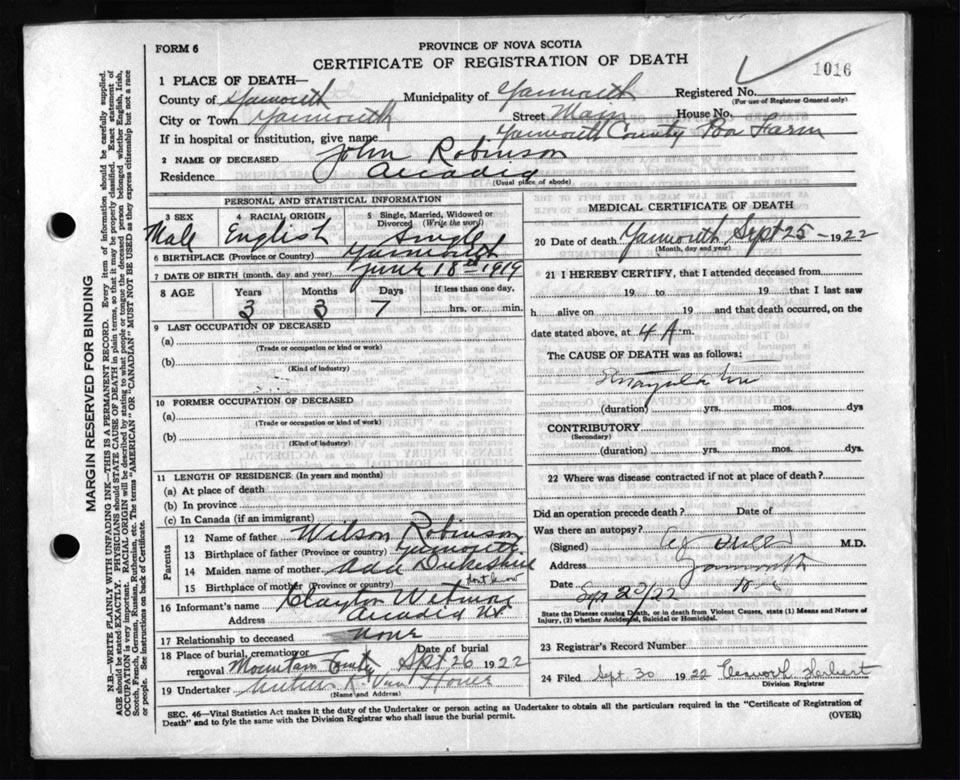 FORM 6
PROVINCE OF NOVA SCOTIA
CERTIFICATE OF REGISTRATION OF DEATH
1016
1 PLACE OF DEATH—
County of Yarmouth Municipality of Yarmouth Registered No.
(For use of Registrar General only)
City or Town Yarmouth Street Main House No.
If in hospital or institution, give name Yarmouth County Poor Farm
2 NAME OF DECEASED John Robinson
Residence Arcadia
(Usual place of abode)
PERSONAL AND STATISTICAL INFORMATION
3 SEX
Male
4 RACIAL ORIGIN
English
5 Single, Married, Widowed or Divorced (Write the word)
Single
6 BIRTHPLACE (Province or Country) Yarmouth
7 DATE OF BIRTH (month, day and year) June 18 1919
8 AGE Years Months Days If less than one day,
3 3 7 hrs. or min.
9 LAST OCCUPATION OF DECEASED
(a)
(Trade or occupation or kind or work)
(b)
(Kind of industry)
10 FORMER OCCUPATION OF DECEASED
(a)
(Trade or occupation or kind or work)
(b)
(Kind of industry)
11 LENGTH OF RESIDENCE (In years and months)
(a) At place of death
(b) In province
(c) In Canada (if an immigrant)
Parents
12 Name of father Wilson Robinson
13 Birthplace of father (Province or country) Yarmouth
14 Maiden name of mother
15 Birthplace of mother (Province or country) dont know
16 Informant's name Clayton
Address Arcadia
17 Relationship to deceased None
18 Place of burial, cremation or removal Mountain Date of burial Sept 26 1922
19 Undertaker Van Horne
(Name and Address)
MEDICAL CERTIFICATE OF DEATH
20 Date of death Yarmouth Sept 25 – 1922
(Month, day and year)
21 I HEREBY CERTIFY, that I attended deceased from
19 to 19 that I last saw
h alive on 19 and that death occurred, on the
date stated above, at 4 A m.
The CAUSE OF DEATH was as follows:
(duration) yrs. mos. dys
CONTRIBUTORY
(Secondary)
(duration) yrs. mos. dys.
22 Where was disease contracted if not at place of death?
Did an operation precede death? Date of
Was there an autopsy?
(Signed) M.D.
Address Yarmouth
Date
State the Disease causing Death, or in death from Violent Causes, state (1) Means and Nature of Injury, (2) whether Accidental, Suicidal or Homicidal.
23 Registrar's Record Number
24 Filed Sept 30 1922
Division Registrar
SEC. 46—Vital Statistics Act makes it the duty of the Undertaker or person acting as Undertaker to obtain all the particulars required in the "Certificate of Registration of
Death" and to fyle the same with the Division Registrar who shall issue the burial permit.
(OVER)
MARGIN RESERVED FOR BINDING
N.B.—WRITE PLAINLY WITH UNFADING INK—THIS IS A PERMANENT RECORD. Every item of information should be carefully supplied.
AGE should be stated EXACTLY. PHYSICIANS should STATE CAUSE OF DEATH in plain terms, so that it may be properly classified. Exact statement of
OCCUPATION is very important. RACIAL ORIGIN will be described by stating to what people or tongue the deceased person belonged whether English, Irish,
Scotch, French, German, Russian, Ruthenian, etc. The terms "AMERICAN" OR "CANADIAN" MUST NOT BE USED as they express citizenship but not a race
or people. See instructions on back of Certificate.